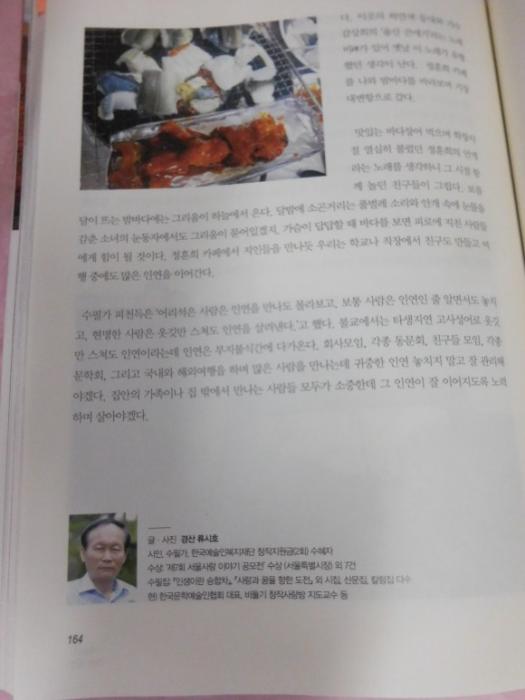 다. 이곳의 하얀색 등대와 가수
김상희의 '울산 큰애기'라는 노래
비碑가 있어 옛날 이 노래가 유행
했던 생각이 난다. 정훈희 카페
를 나와 밤바다를 바라보며 기장
대변항으로 갔다.
맛있는 바다장어 먹으며 학창시
절 열심히 불렀던 정훈희의 안개
라는 노래를 생각하니 그 시절 함
께 놀던 친구들이 그립다. 보름
달이 뜨는 밤바다에는 그리움이 하늘에서 온다. 달밤에 소곤거리는 풀벌레 소리와 안개 속에 눈물을
감춘 소녀의 눈동자에서도 그리움이 묻어있겠지. 가슴이 답답할 때 바다를 보면 피로에 지친 사람들
에게 힘이 될 것이다. 정훈희 카페에서 지인들을 만나듯 우리는 학교나 직장에서 친구도 만들고 여
행 중에도 많은 인연을 이어간다.
수필가 피천득은 '어리석은 사람은 인연을 만나도 몰라보고, 보통 사람은 인연인 줄 알면서도 놓치
고, 현명한 사람은 옷깃만 스쳐도 인연을 살려낸다.'고 했다. 불교에서는 타생지연 고사성어로 옷깃
만 스쳐도 인연이라는데 인연은 부지불식간에 다가온다. 회사모임, 각종 동문회, 친구들 모임, 각종
문학회, 그리고 국내와 해외여행을 하며 많은 사람을 만나는데 귀중한 인연 놓치지 말고 잘 관리해
야겠다. 집안의 가족이나 집 밖에서 만나는 사람들 모두가 소중한데 그 인연이 잘 이어지도록 노력
하며 살아야겠다.
글 · 사진 경산 류시호
시인, 수필가, 한국예술인복지재단 창작지원금(2회) 수혜자
수상: '제7회 서울사랑 이야기 공모전' 수상 (서울특별시장) 외 7건
수필집: 『인생이란 승합차』, 『사랑과 꿈을 향한 도전』, 외 시집, 산문집, 칼럼집 다수
현) 한국문학예술인협회 대표, 비둘기 창작사랑방 지도교수 등
164